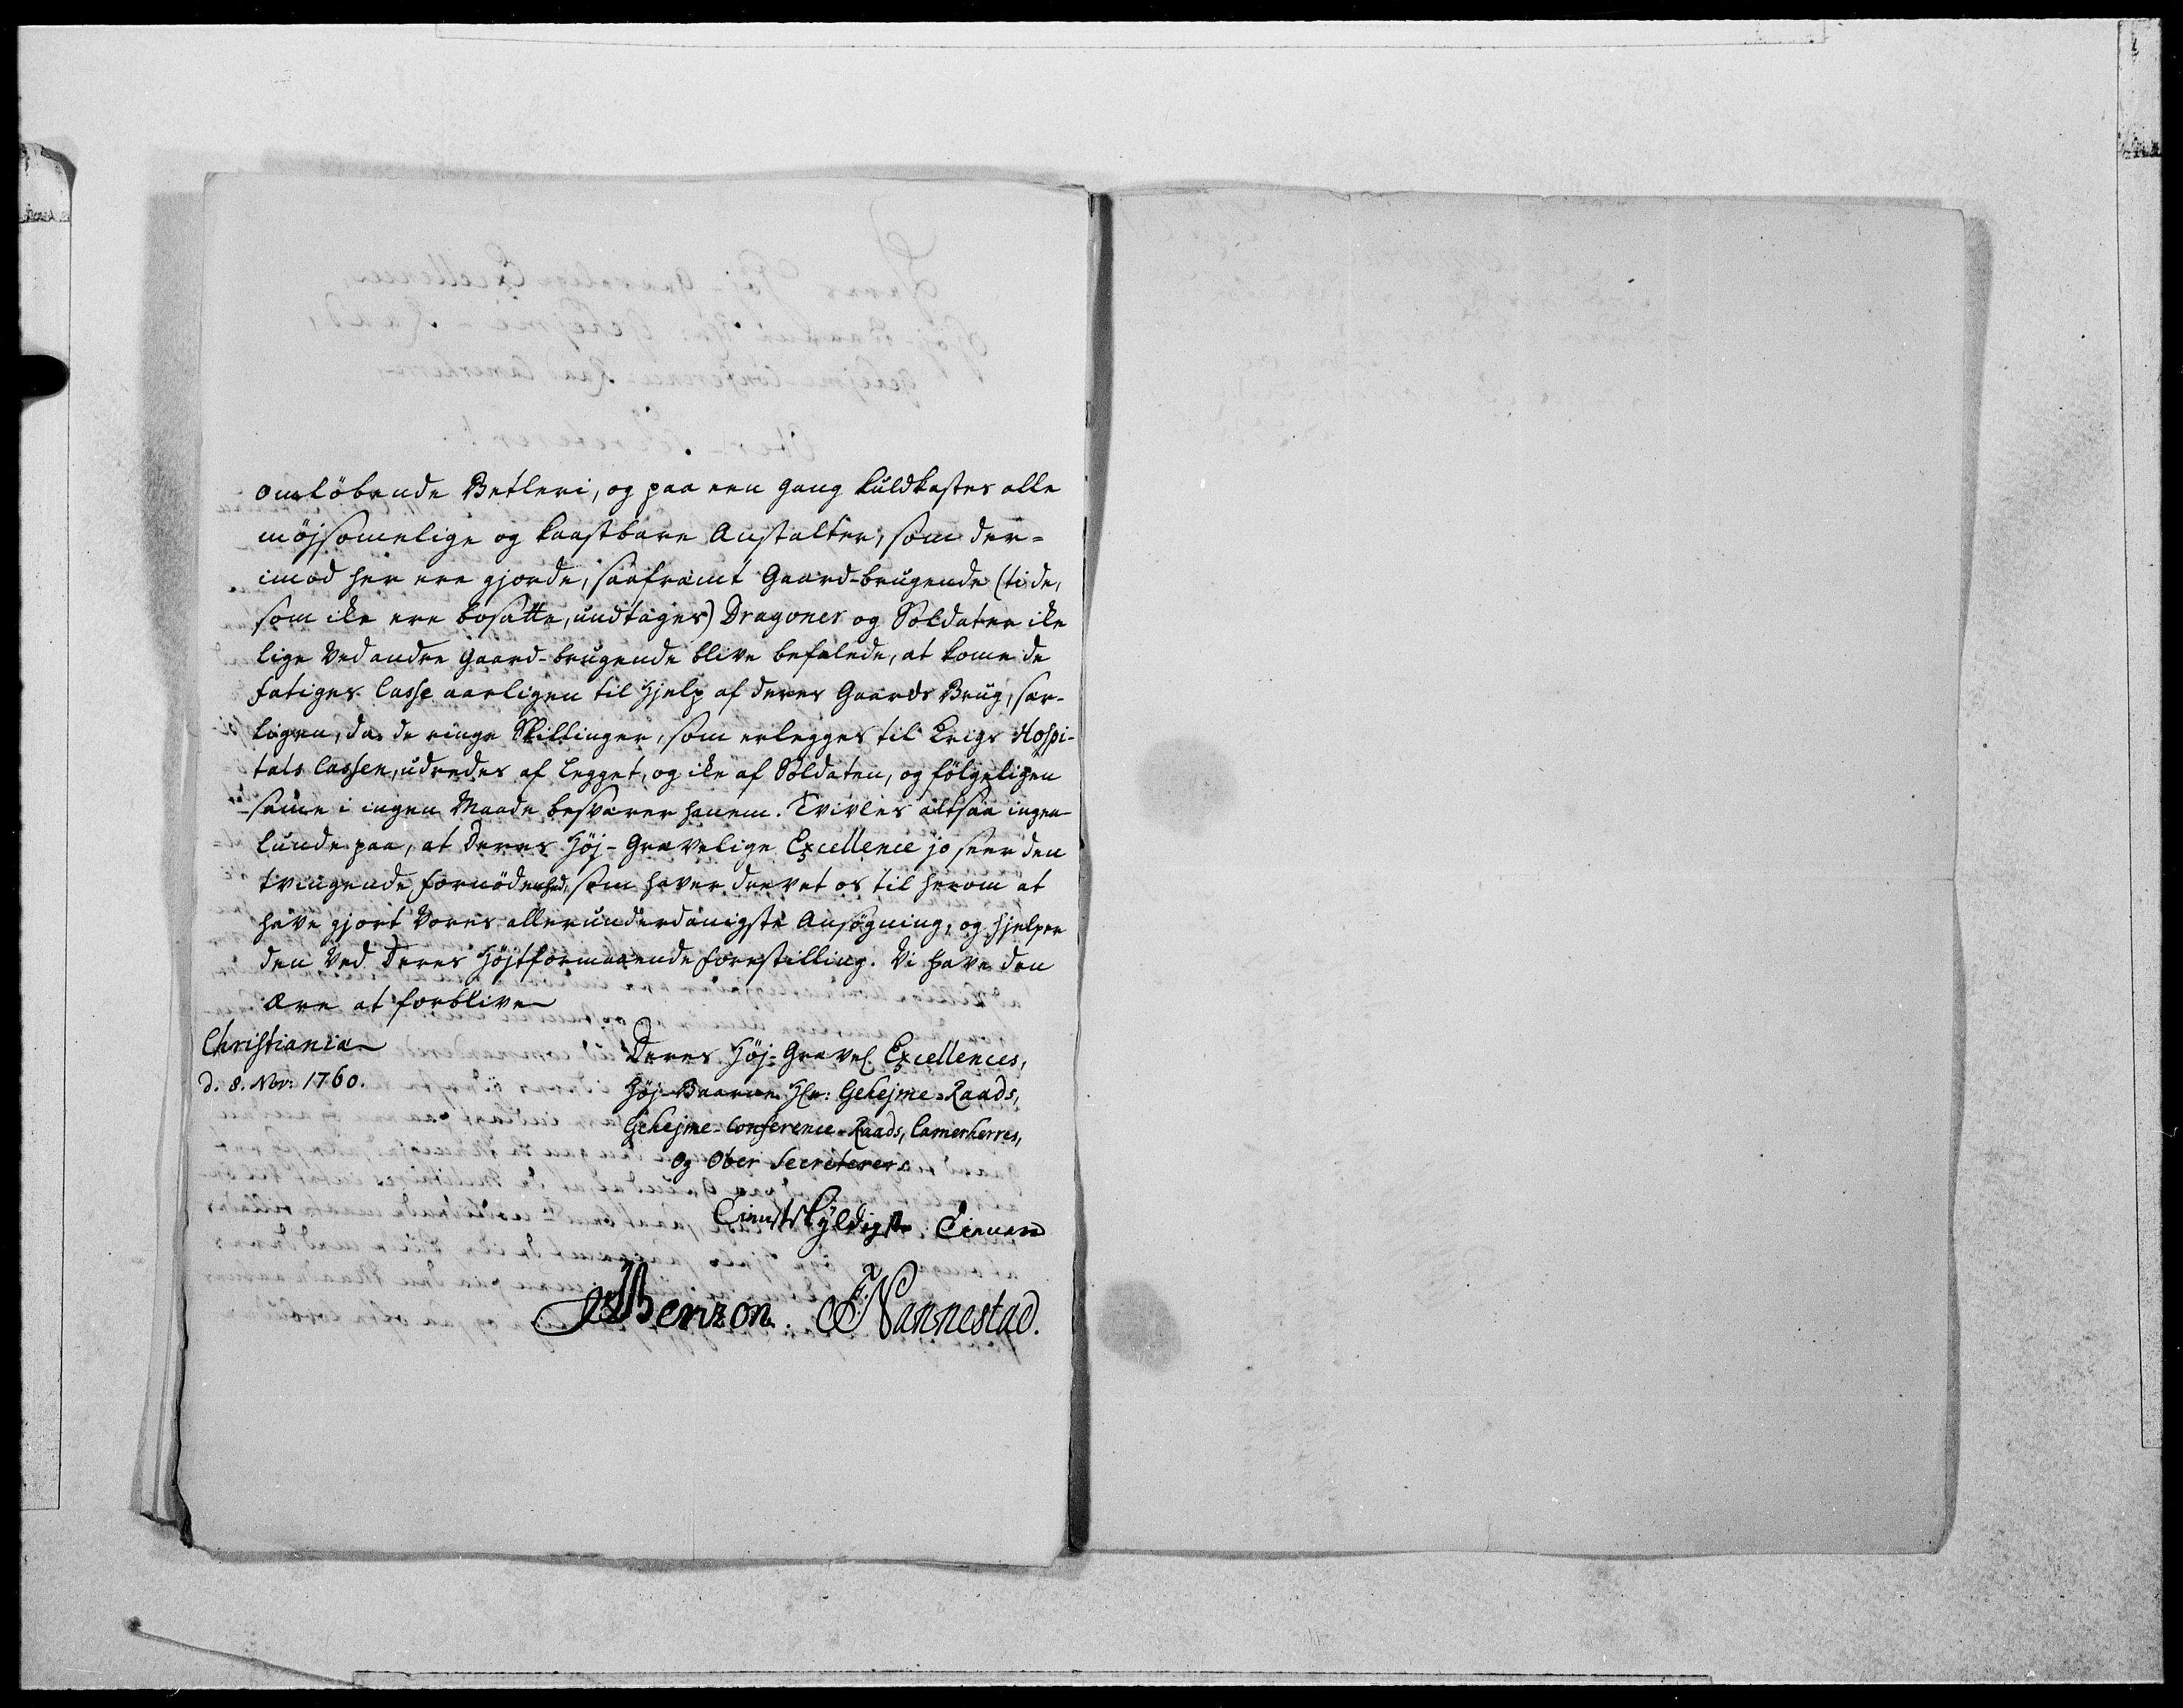 omløbende Betleri, og paa een gang kuldkastes alle
møjsommelige og kaastbare Anstalter, som der=
imod her ere gjorde, saafremt Gaard-brugende (ti de,
som ike ere bosatte, undtages) Dragoner og Soldater ike
lige ved andre Gaard-brugende blive befalede, at kome de
fatiges Casse aarligen til Hjelp af deres Gaards Brug, sær-
ligen, da de ringe Skillinger, som erlegges til Krigs Hospi-
tals Cassen, udredes af Legget, og ike af Soldaten, og følgeligen
same i ingen Maade besværer hanem. Tvivles altsaa ingen-
lunde paa, at Deres Høj-Grævelige Excellence jo seer den
tvingende fornødenhed, som haver drevet os til herom at
have gjort vores allerunderdanigste Ansøgning, og hjelper
den ved Deres Højtformaaende forestilling. Vi have den
Ære at forblive
Christiania
d. 8. Nov: 1760.
Deres Høj-Grævel. Excellences,
Høj-Baarne Hr: Gehejme-Raads,
Gehejme-Conference-Raads, Camerherres,
og Ober Secreterers
Tienstskyldigste Tienere
Benzon. F Nannestad.